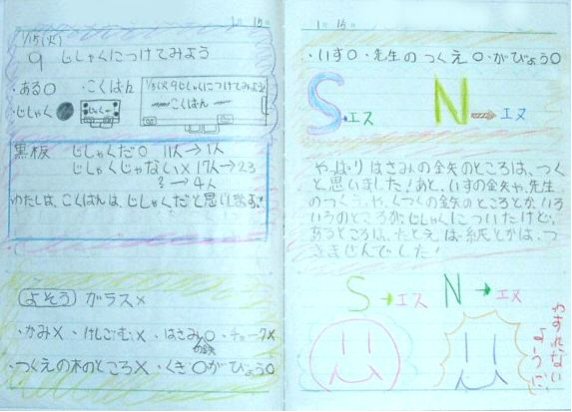 1月 15日
1/15(火)
9 じしゃくにつけてみよう
・ある○ ・こくばん
・じしゃく
1/15(火)9じしゃくにつけてみよう
こくばん
黒板 じしゃくだ○ 11人→1人
じしゃくじゃない× 17人→23
? → 4人
わたしは、こくばんは、じしゃくだと思います。
よそう ガラス×
・かみ× ・けしごむ× ・はさみ○ ・チョーク×
の鉄
・つくえの木のところ× ・くぎ○ がびょう○
1月 15日
・いす○ ・先生のつくえ○ ・がびょう○
S・エス N→エヌ
やっぱりはさみの金矢のところは、つく
と思いました!あと、いすの金矢や、先生
のつくえや、くつの金矢のところとか、いろ
いろのところが、じしゃくについたけど、
あるところは、たとえば紙とかは、つ
きませんでした!
S→エス N→エヌ
わすれない
ように!